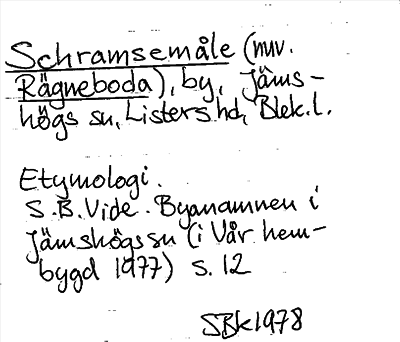 Schramsemåle (nuv.
Rägneboda), by, Jäms-
högs sn, Listers hd, Blek.l.
Etymologi.
S.B. Vide. Byanamnen i
Jämshögs sn (i Vår hem-
bygd 1977) s. 12
SBk 1978